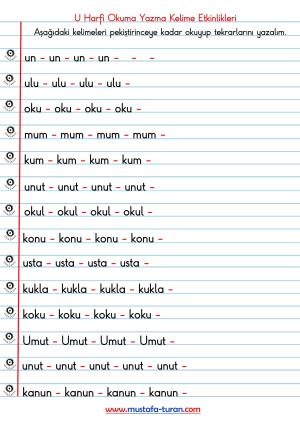 U Harfi Okuma Yazma Kelime Etkinlikleri
Aşağıdaki kelimeleri pekiştirinceye kadar okuyup tekrarlarını yazalım.
un - un - un - un - - -
ulu - ulu - ulu - ulu -
oku - oku - oku - oku -
mum - mum - mum - mum -
kum - kum - kum - kum -
unut - unut - unut - unut -
okul - okul - okul - okul -
konu - konu - konu - konu -
usta - usta - usta - usta -
kukla - kukla - kukla - kukla -
koku - koku - koku - koku -
Umut - Umut - Umut - Umut -
unut - unut - unut - unut - unut -
kanun - kanun - kanun - kanun -
www.mustafa-turan.com